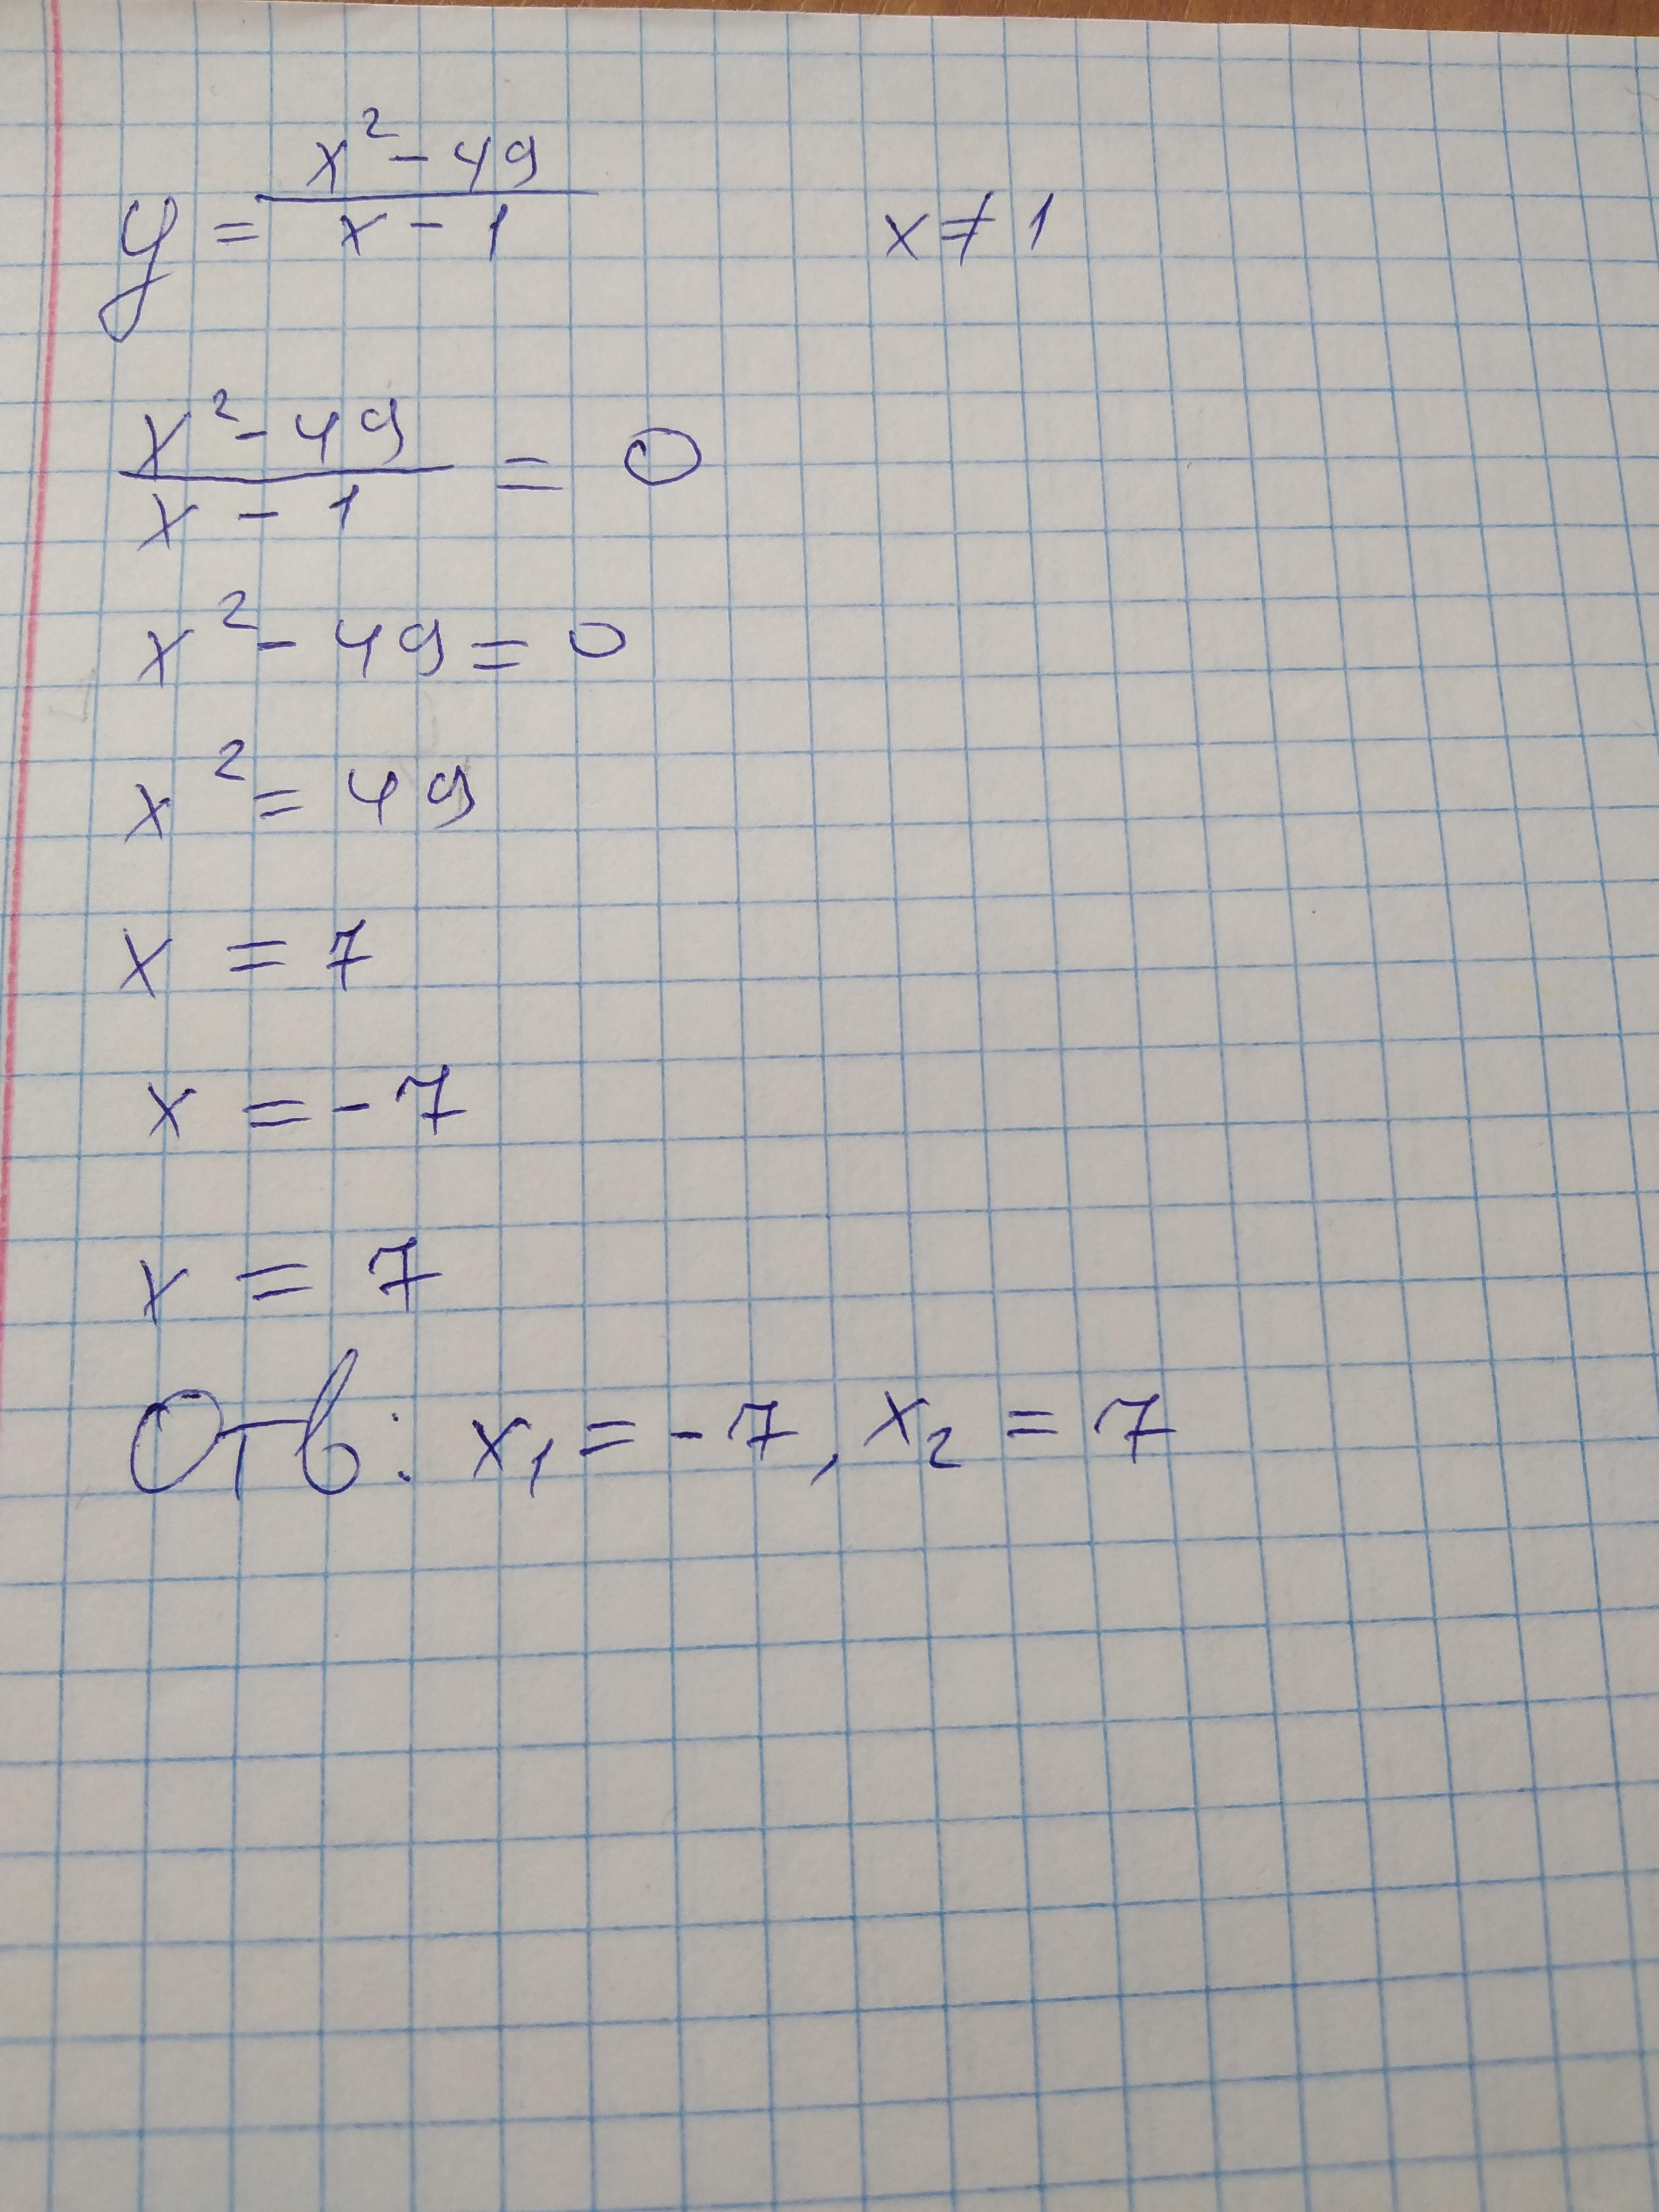 y = (x² - 49)/(x - 1)    x ≠ 1
(x² - 49)/(x - 1) = 0
x² - 49 = 0
x² = 49
x = 7
x = -7
x = 7
Отв: x₁ = -7, x₂ = 7